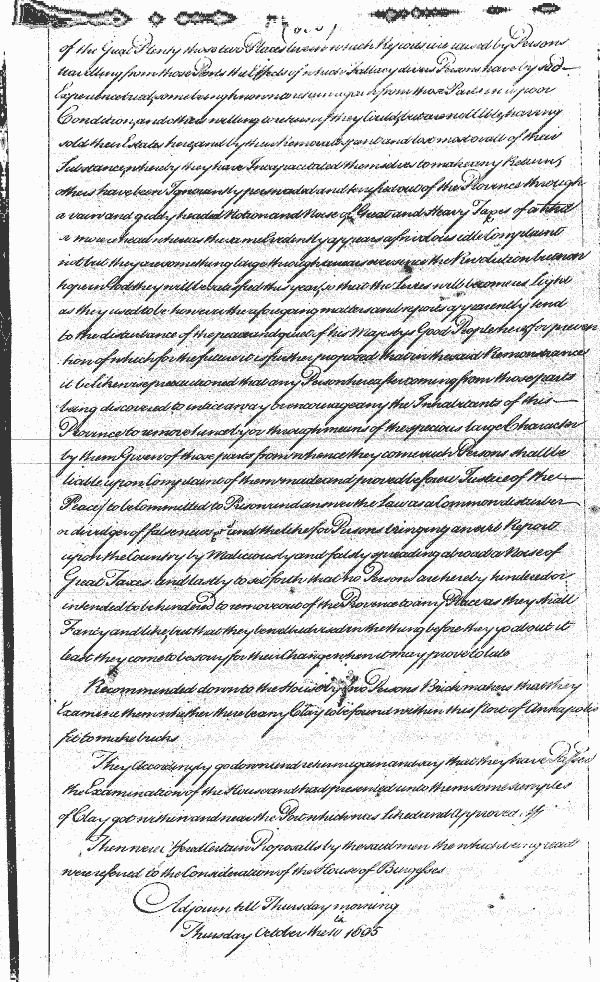 of the Great Plenty those two Places wherein which Reports are raised by Persons
travelling from those Parts the Effects of which Fallacy divers Persons have by sad
Experience tryed, some being known to come again from those Parts in a poor
Condition, and others willing to return if they Could, but are not Able, having
sold their Estates here, and by their Remove spent and lose most or all of their
Substance, whereby they have Incapacitated themselves to make any Return,
others have been Ignorantly perswaded and terrifyed out of the Province through
a vain and giddy headed Notion and Noise of Great and Heavy Taxes of
or more head whereas the same Evidently appears a frivolous idle Complaint
not but they are something large through since the Revolution but upon
hope in God they will be satisfied this year, so that the Levies will become as light
as they used to be however the aforegoing matters and reports apparently tend
to the disturbance of the peace and quiet of his Majestys Good People here for preven
tion of which for the future it is further proposed that in the said Remonstrances
it be likewise precautioned that any Person hereafter coming from those parts
being discovered to intice away or encourage any the Inhabitants of this
Province to remove hence by or through means of the specious large Character
by them Given of those parts from whence they come such Persons shall be
liable upon Complaint of them made and proved before a Justice of the
Peace, to be Committed to Prison and answer the Law as a Common disturber
or divulger of false news, and the like for Persons bringing an evil Report
upon the Country by Maliciously and falsly spreading abroad a Noise of
Great Taxes. and lastly to set forth that no Person are hereby hindered or
intended to be hindered to remove out of the Province to any Place as they shall
Fancy and like, but that they be well advised in the thing before they go about it
least they come to be sorry for their Change when it may prove to late
Recommended down to the House by two Persons Brickmakers that they
Examine them whether there be any Clay to be found within this Port of Annapolis
fit to make bricks
They Accordingly go down and return again and say that they have Passed
the Examination of the House and had presented unto them some samples
of Clay got within and near the Port which was liked and Approved off
Then were Offered Certain Proposalls by the said men the which being read
were referred to the Consideration of the House of Burgesses
Adjourn till Thursday morning
Thursday October the 10 1695